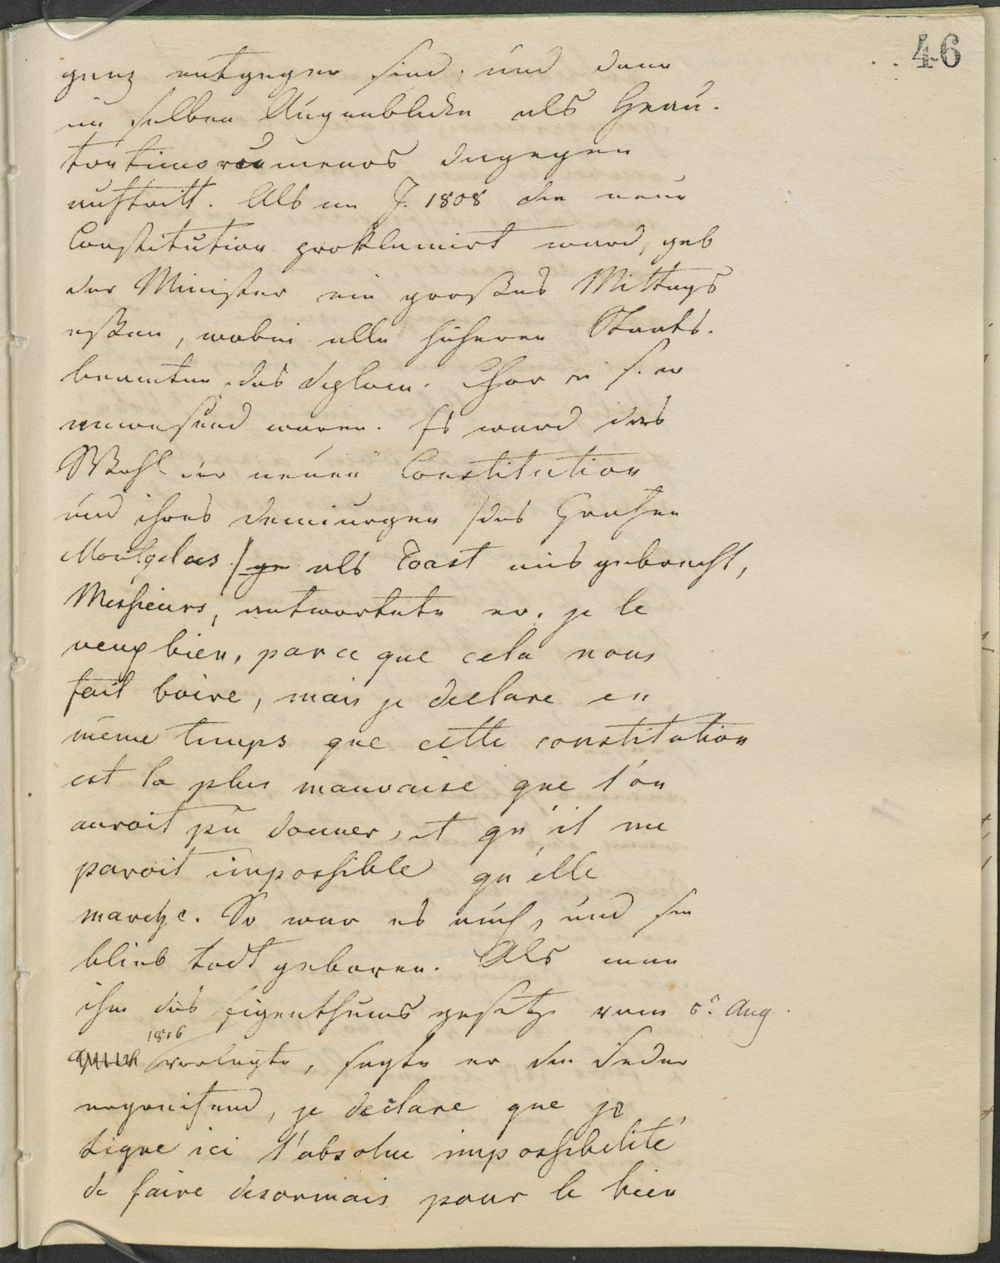 46
ganz entgegen sind, und dann
im selben Augenblicke als Heau-
tontimorumenos dagegen
auftritt. Als im J. 1808 die neue
Constitution proklamirt ward, gab
der Minister ein großes Mittags
eßen, wobei alle höheren Staats-
beamten das diplom. Chor
anwesend waren. Es ward das
Wohl der neuen Constitution
und ihres Demiurgen /des Grafen
Montgelas/ als Toast ausgebracht,
Messieurs, antwortete er, je le
veux bien, parce que cela nous
fait boire, mais je declare en
même temps que cette constitution
est la plus mauvaise que l'on
auroit pu donner, et qu'il me
paroit impossible qu'elle
marche. So war es auch, und sie
blieb todt geboren. Als man
ihm das Eigenthumsgesetz vom 6t Aug.
1816 vorlegte, sagte er die Feder
ergreifend, je declare que je
signe ici l'absolue impossibilité
de faire desormais pour le bien